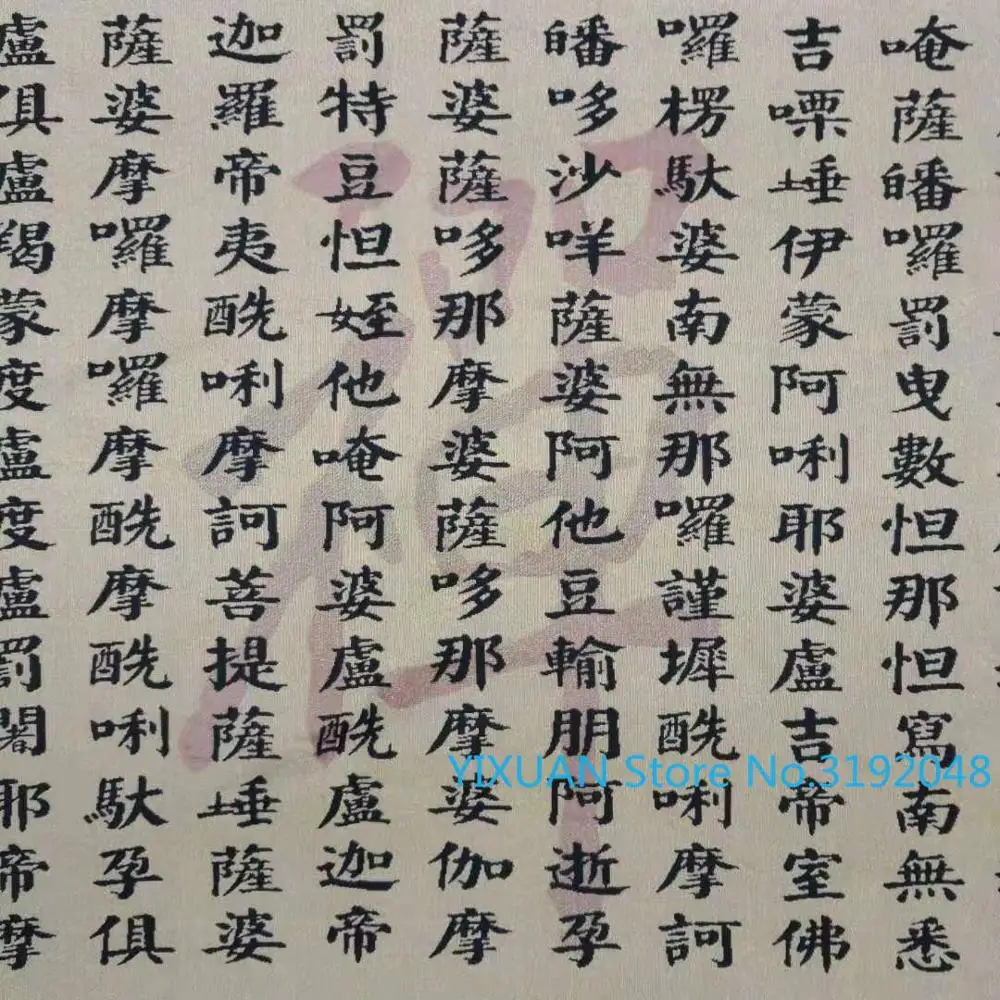 唵薩皤囉罰曳數怛那怛寫南無悉
吉㗚埵伊蒙阿唎耶婆盧吉帝室佛
囉楞馱婆南無那囉謹墀醯唎摩訶
皤哆沙咩薩婆阿他豆輸朋阿逝孕
薩婆薩哆那摩婆薩哆那摩婆伽摩
罰特豆怛姪他唵阿婆盧醯盧迦帝
迦羅帝夷醯唎摩訶菩提薩埵薩婆
薩婆摩囉摩囉摩醯摩醯唎馱孕俱
盧俱盧羯蒙度盧度盧罰闍耶帝摩
禪
YIXUAN Store No.3192048